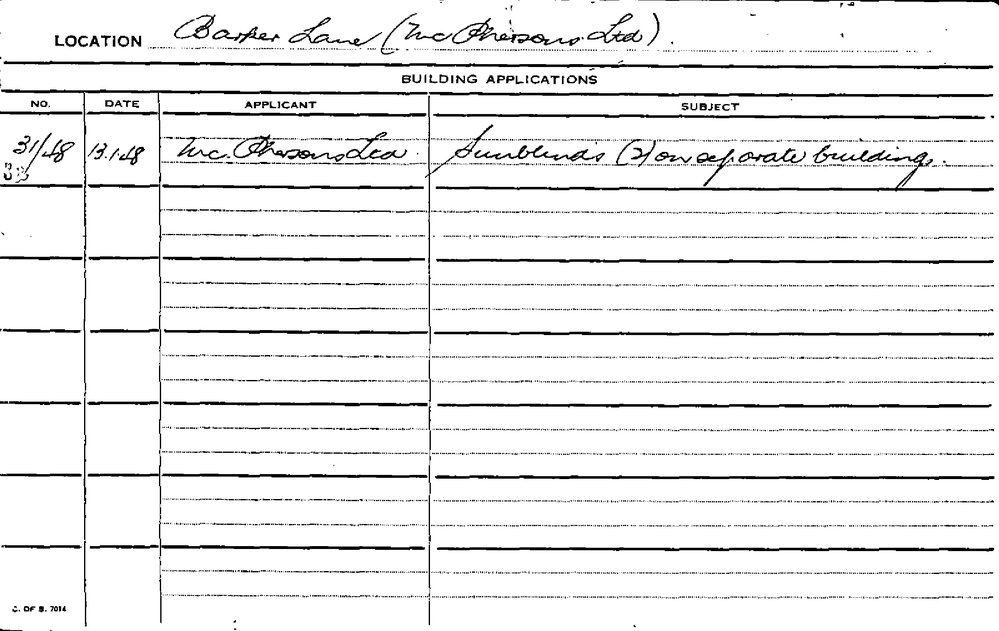 LOCATION Barker Lane (Mc Phersons Ltd).
BUILDING APPLICATIONS
NO. DATE APPLICANT SUBJECT
31/48 13.1.48 Mc. Phersons Ltd. Sunblinds (2) on separate buildings.
33
C. OF B. 7014